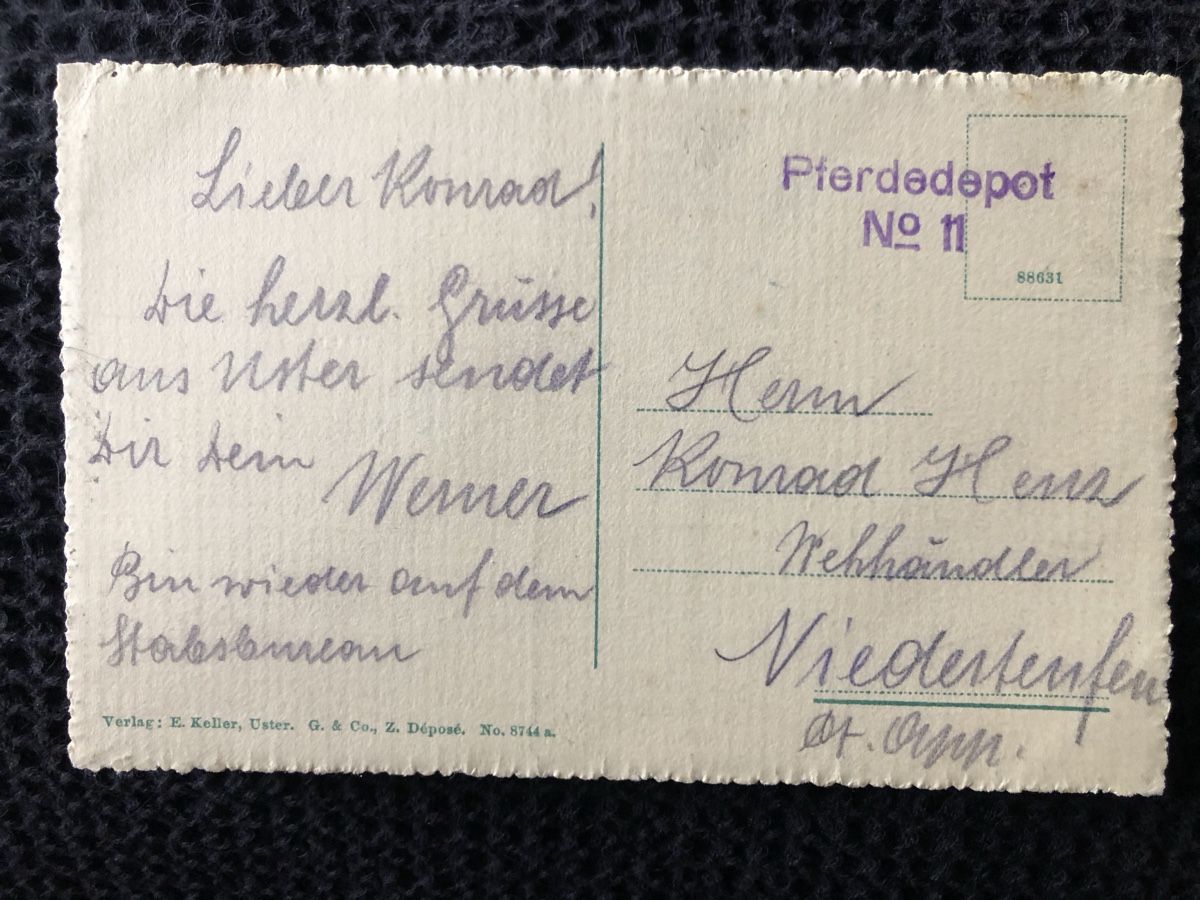 Lieber Konrad!
Die herzl. Grüsse
aus Uster sendet
Dir Dein
Werner
Bin wieder auf dem
Stabsbureau
Verlag: E. Keller, Uster. G. & Co., Z. Déposé. No. 8744 a.
Pferdedepot
No 11
88631
Herrn
Konrad Henz
Viehhändler
Niederteufen
Kt. App.